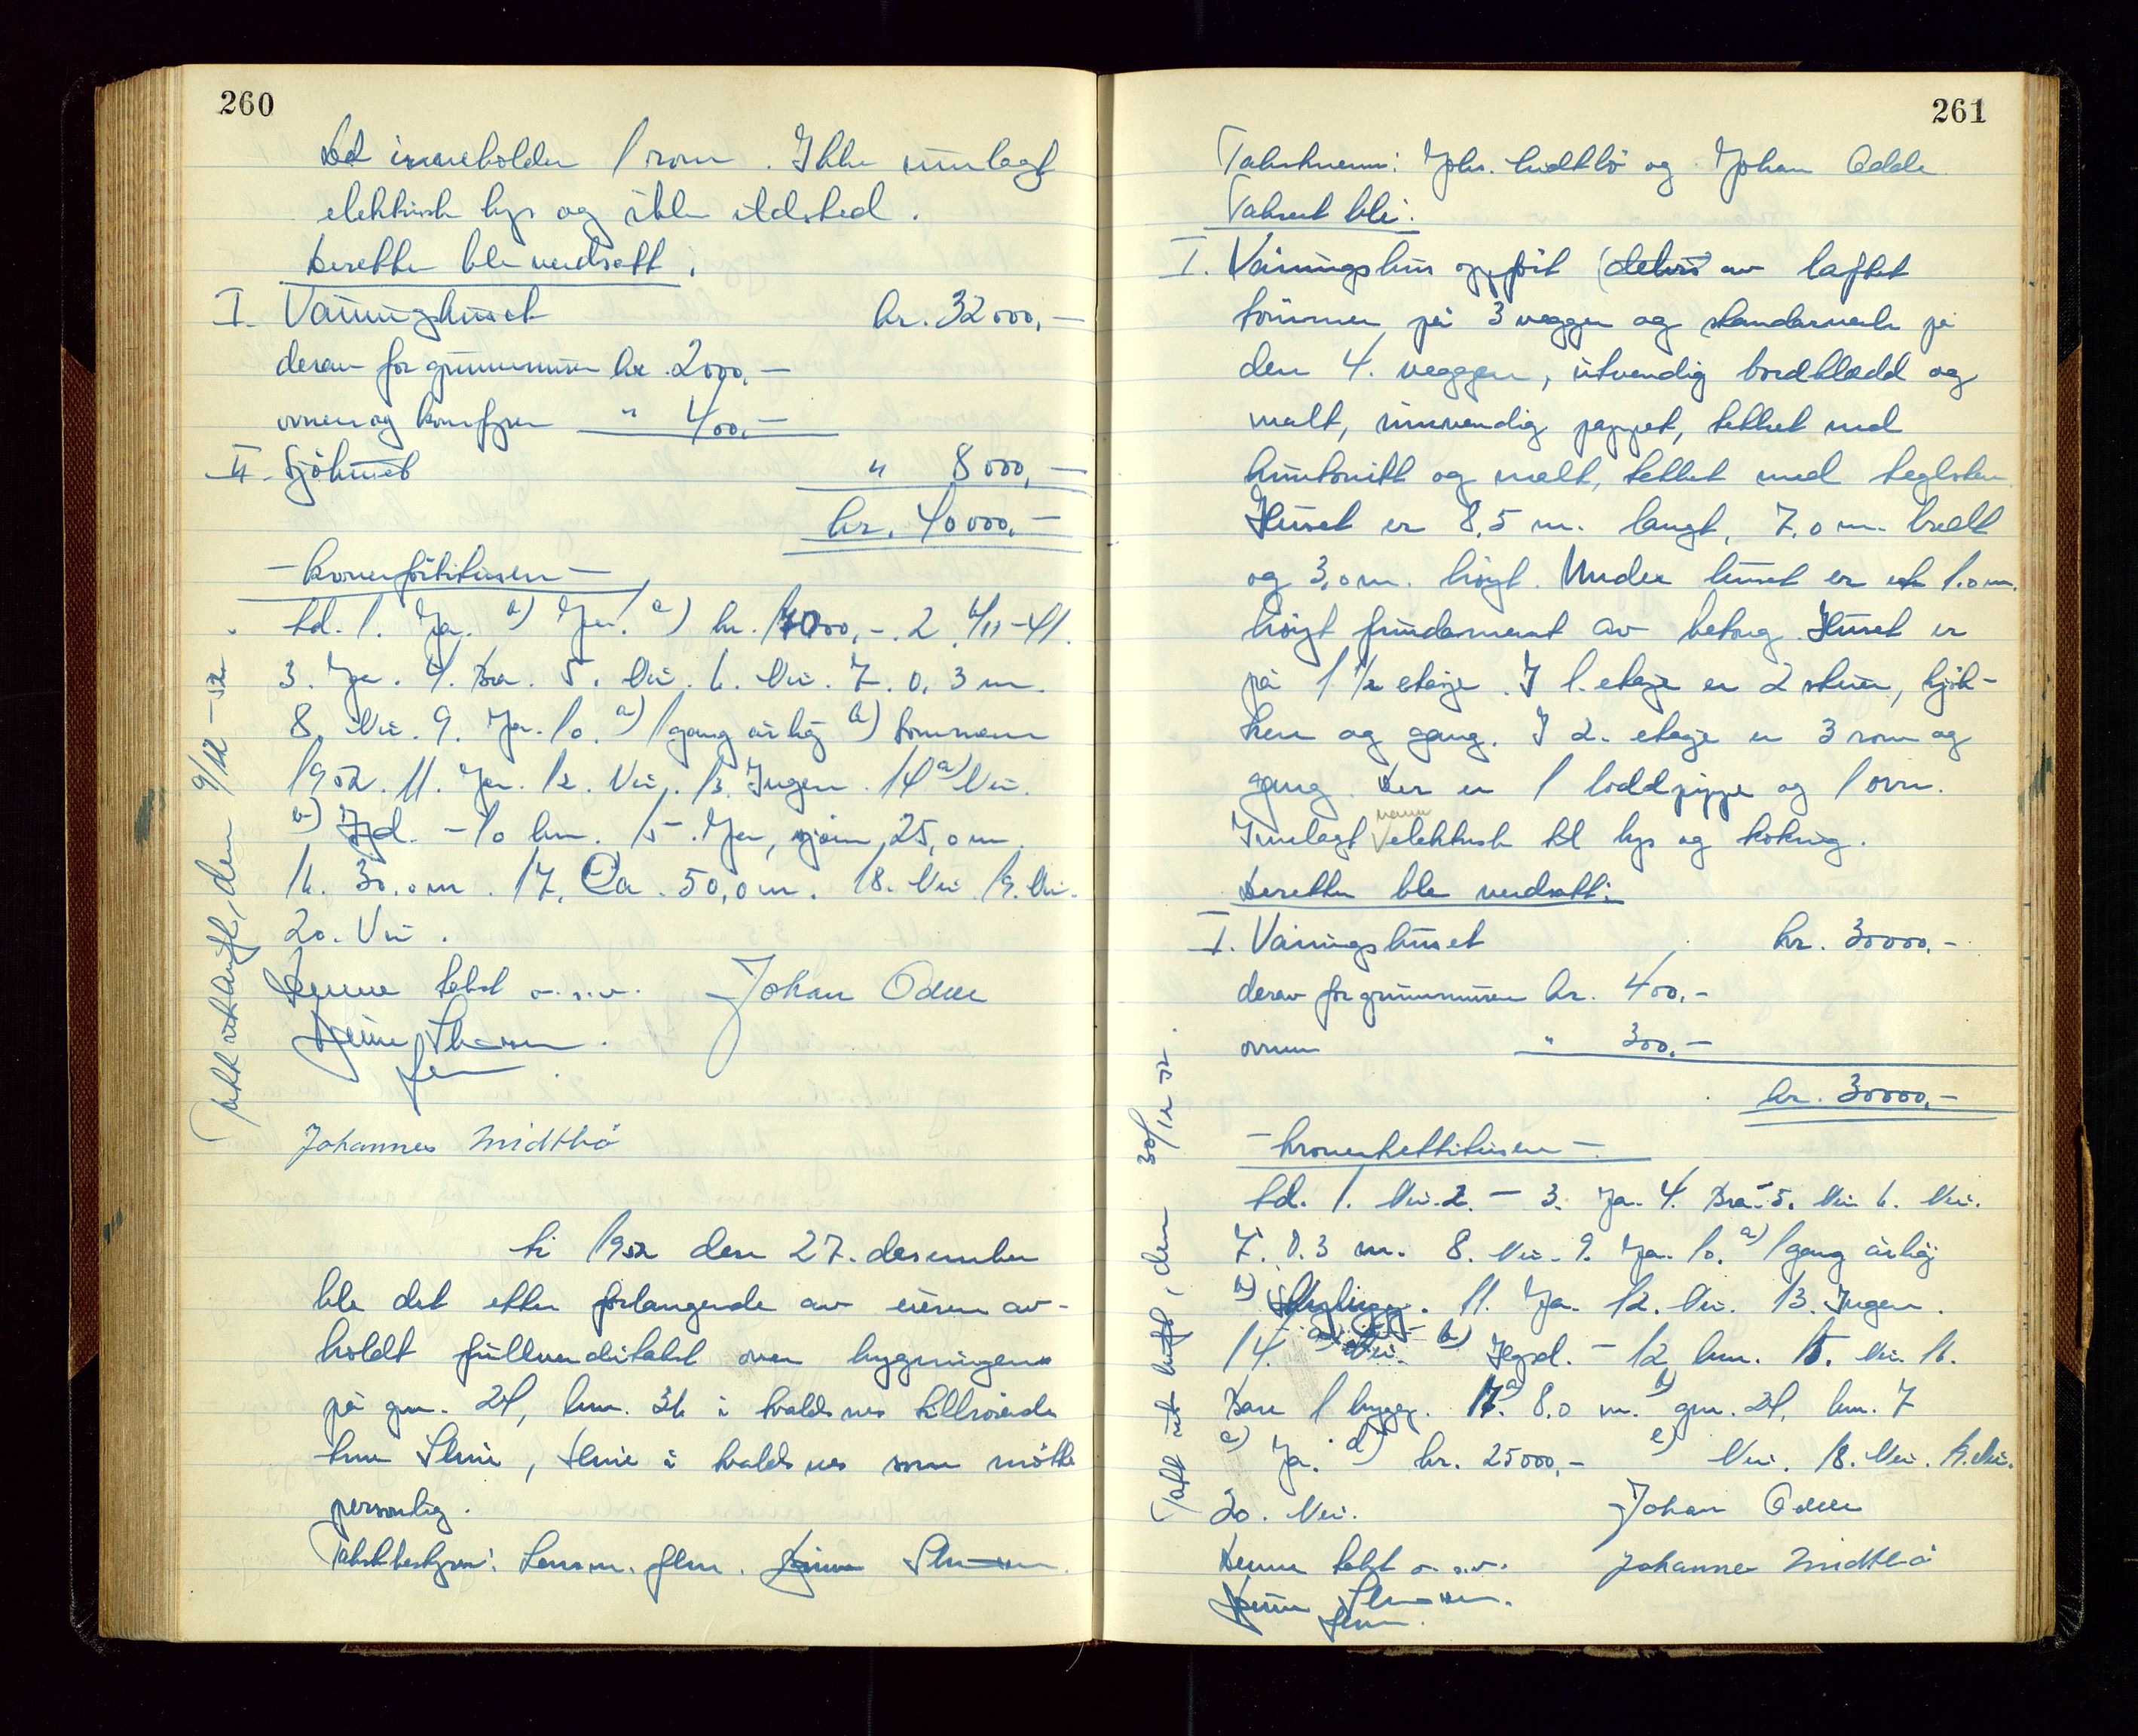 260
Det inneholder 1 rom. Ikke innlagt
elektrisk lys og ikke ildsted.
Deretter ble verdsatt:
I. Våningshuset kr. 32000,-
derav for grunnmuren kr. 2000,-
ovnen og komfyren " 400,-
II. Sjöhuset " 8000,-
kr. 40000,-
- kronerförtitusen -
Ad. 1. Ja. a) Ja. kr. 2. -41.
3. Ja. 4. Bra. 5. Nei. 6. Nei. 7. 0,3 m.
8. Nei. 9. Ja. 10. a) 1 gang årlig b) Sommeren
1952. 11. Ja. 12. Nei. 13. Ingen. 14 a) Nei.
b) - 10 km. 15. Ja, 25,0 m.
16. 30,0 m. 17. Ca. 50,0 m. 18. Nei. 19. Nei.
20. Nei.
Denne takst o.s.v. Johan Odde
Johannes Midtbö
Takst utskr., den 9/12-52.
År 1952 den 27. desember
ble det etter forlangende av eieren av-
holdt fullverditakst over bygningene
på gnr. 24, bnr. 36 i tilhörende
som mötte
personlig.
Takstbestyrer: Lensm. flm.
261
Takstmenn: Johs. Midtbö og Johan Odde
Takert ble:
I. Våningshus oppfört (delvis av laftet
tömmer på 3 vegger og på
den 4. veggen, utvendig bordklædd og
malt, innvendig pappet, tekket med
huntonitt og malt, tekket med teglsten.
Huset er 8,5 m. langt, 7,0 m. bredt
og 3,0 m. höyt. Under huset er et 1,0 m.
höyt fundament av betong. Huset er
på 1 1/2 etasje. I 1. etasje er 2 stuer, kjök-
ken og gang. I 2. etasje er 3 rom og
gang. Der er 1 loddpipe og 1 ovn.
vann
Innlagt elektrisk til lys og koking.
Deretter ble verdsatt:
I. Våningshuset kr. 30000,-
derav for grunnmuren kr. 400,-
ovnen " 300,-
kr. 30000,-
- kronertrettitusen -
Ad. 1. Nei. 2. - 3. Ja. 4. Bra. 5. Nei. 6. Nei.
7. 0.3 m. 8. Nei. 9. Ja. 10. a) 1 gang årlig
b) 11. Ja. 12. Nei. 13. Ingen.
14. a) Nei. b) - 12 km. 15. Nei. 16.
Bare 1 bygg. 17. a) 8.0 m. b) gnr. 24, bnr. 7
c) Ja. d) kr. 25000,- e) Nei. 18. Nei. 19. Nei.
20. Nei. Johan Odde
Denne takst o.s.v. Johannes Midtbö
Takst utskr., den 30/12 52.